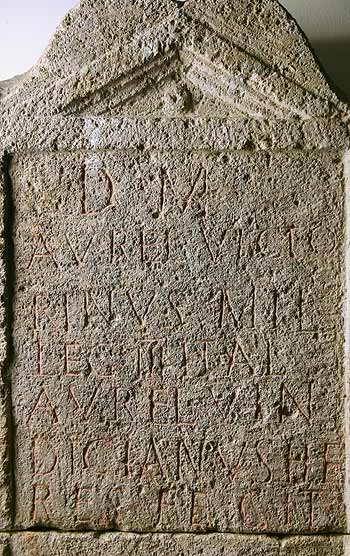 D M
AVREL VICTO
RINVS MIL
LEG II ITAL
AVREL VIN
DICIANVS HE
RES FECIT